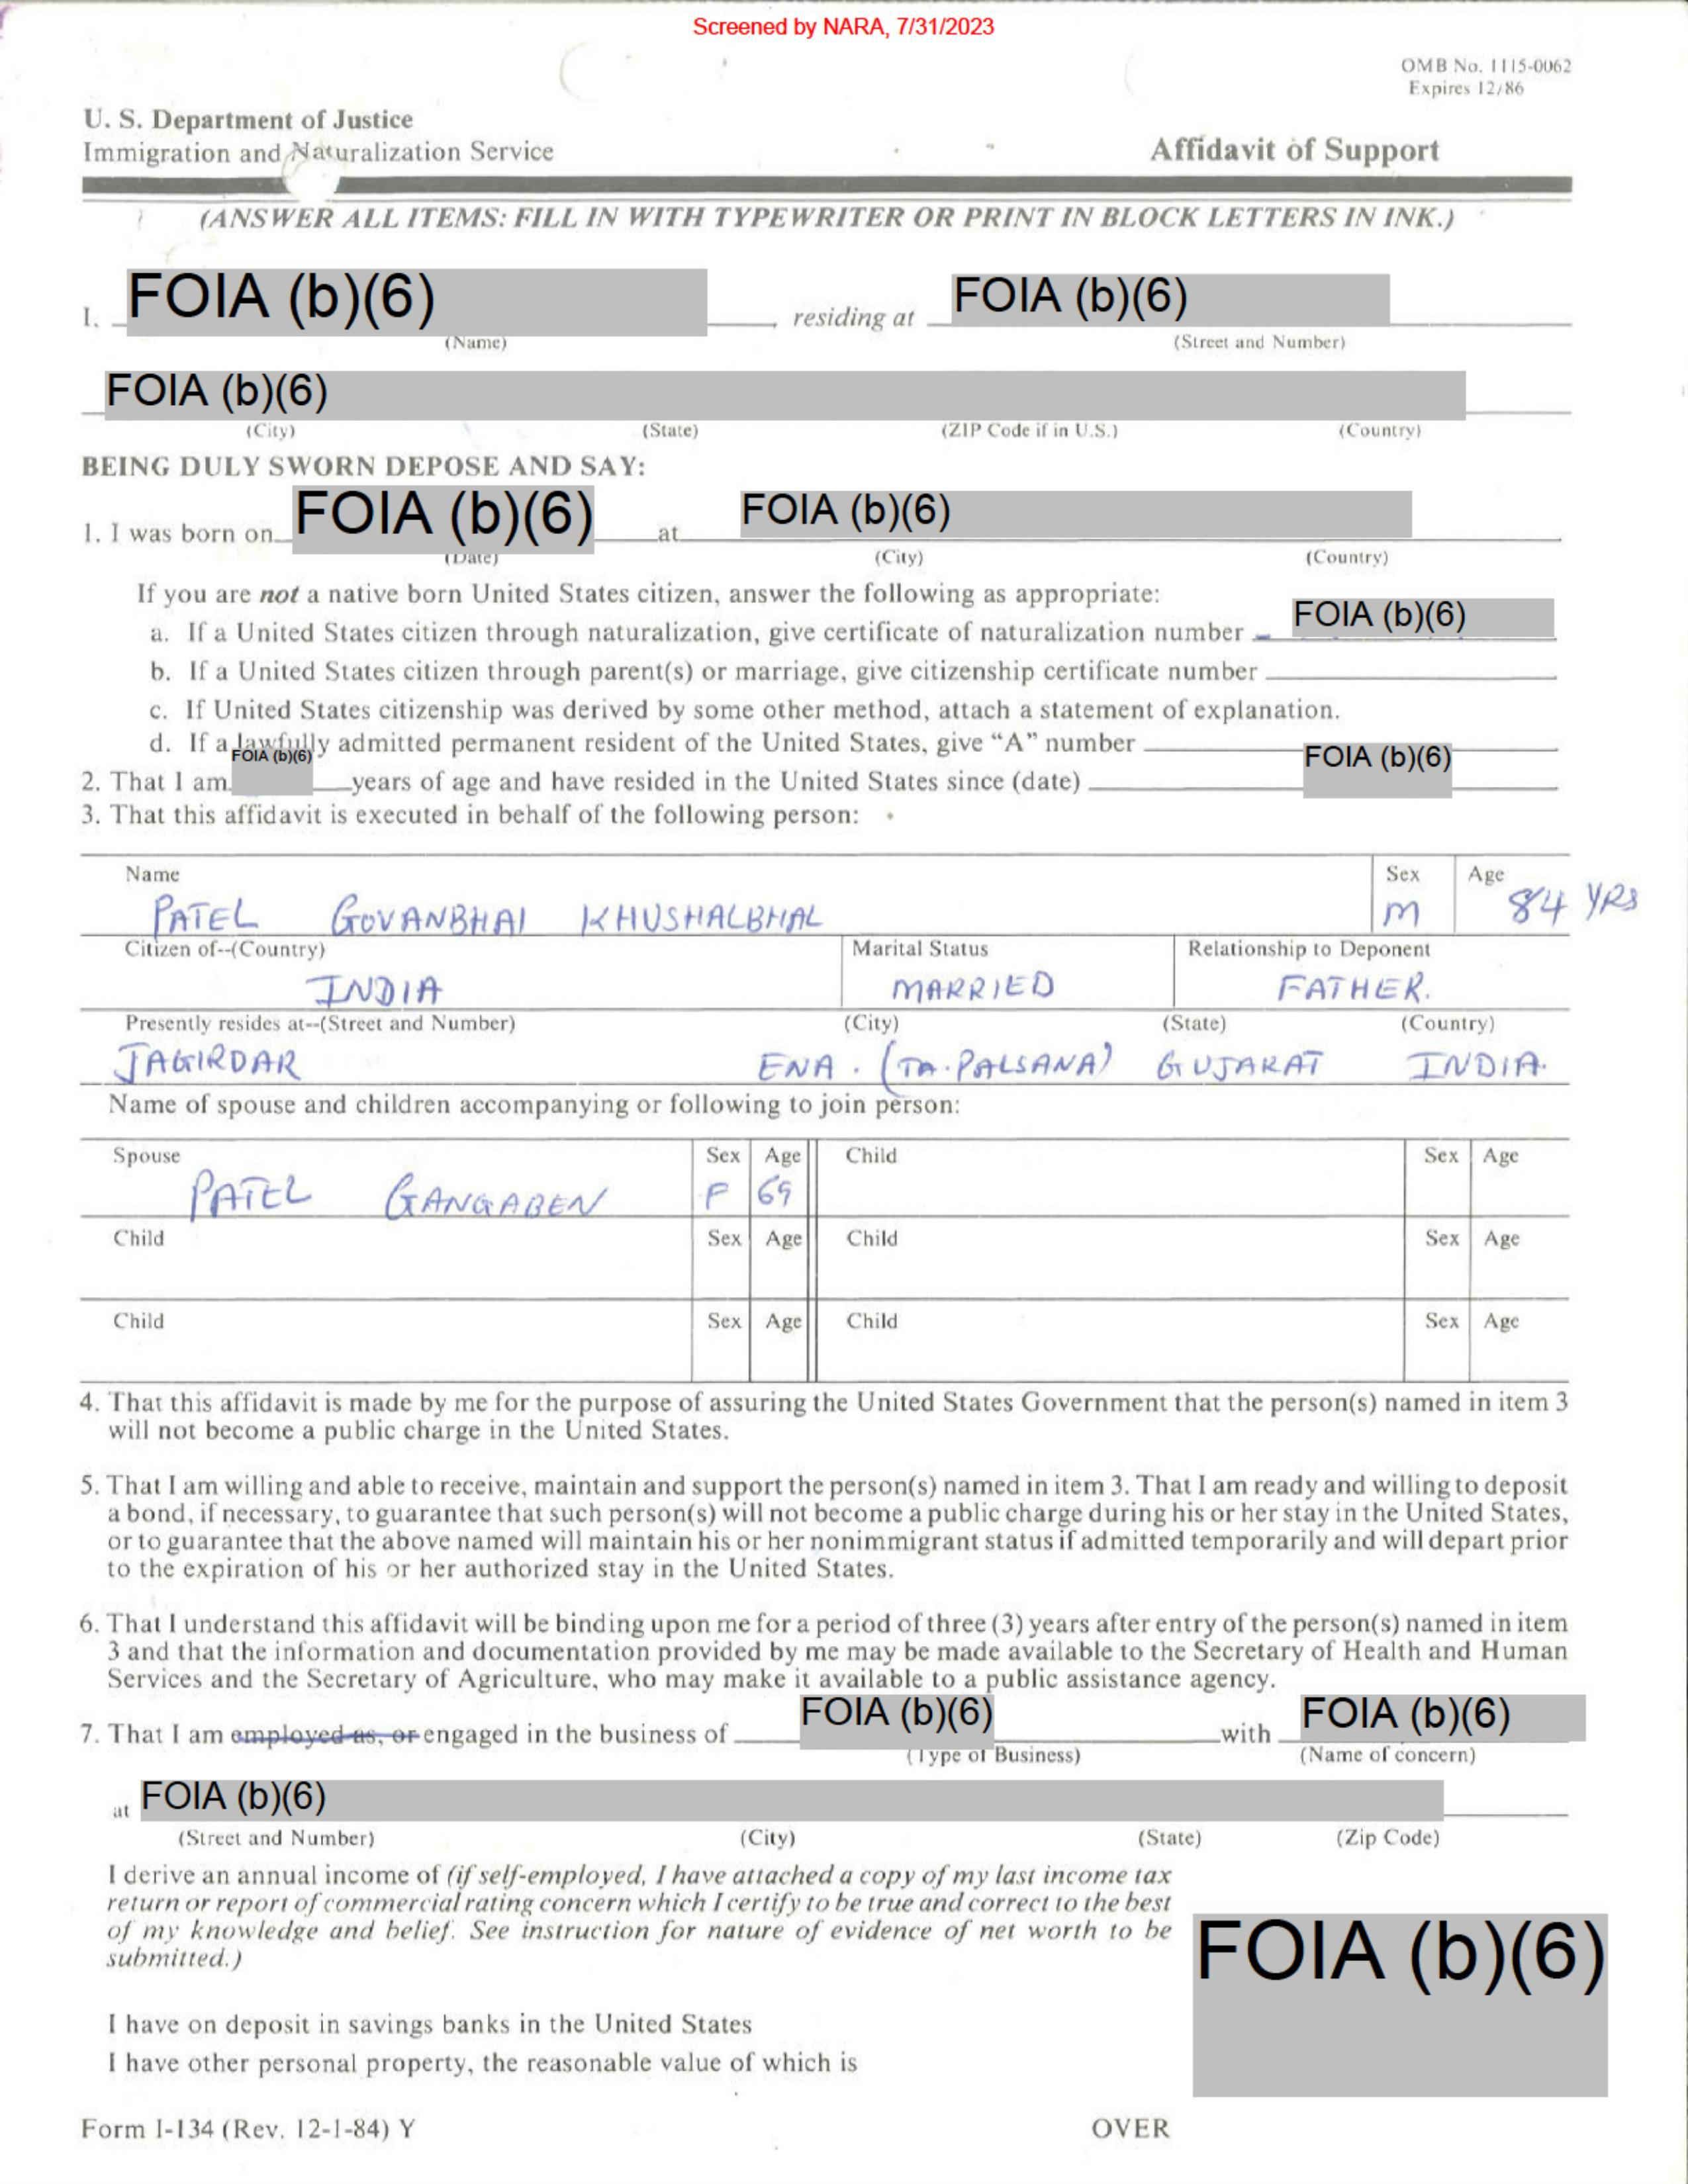 Screened by NARA, 7/31/2023
OMB No. 1115-0062
Expires 12/86
U. S. Department of Justice
Immigration and Naturalization Service
Affidavit of Support
(ANSWER ALL ITEMS: FILL IN WITH TYPEWRITER OR PRINT IN BLOCK LETTERS IN INK.)
I, FOIA (b)(6), residing at FOIA (b)(6)
(Name) (Street and Number)
FOIA (b)(6)
(City) (State) (ZIP Code if in U.S.) (Country)
BEING DULY SWORN DEPOSE AND SAY:
1. I was born on FOIA (b)(6) at FOIA (b)(6)
(Date) (City) (Country)
If you are not a native born United States citizen, answer the following as appropriate:
a. If a United States citizen through naturalization, give certificate of naturalization number FOIA (b)(6)
b. If a United States citizen through parent(s) or marriage, give citizenship certificate number
c. If United States citizenship was derived by some other method, attach a statement of explanation.
d. If a lawfully admitted permanent resident of the United States, give "A" number
2. That I am FOIA (b)(6) years of age and have resided in the United States since (date) FOIA (b)(6)
3. That this affidavit is executed in behalf of the following person:
Name Sex Age
PATEL GOVANBHAI KHUSHALBHAI M 84 YRS
Citizen of--(Country) Marital Status Relationship to Deponent
INDIA MARRIED FATHER.
Presently resides at--(Street and Number) (City) (State) (Country)
JAGIRDAR ENA. (TA. PALSANA) GUJARAT INDIA.
Name of spouse and children accompanying or following to join person:
Spouse Sex Age Child Sex Age
PATEL GANGABEN F 69
Child Sex Age Child Sex Age
Child Sex Age Child Sex Age
4. That this affidavit is made by me for the purpose of assuring the United States Government that the person(s) named in item 3
will not become a public charge in the United States.
5. That I am willing and able to receive, maintain and support the person(s) named in item 3. That I am ready and willing to deposit
a bond, if necessary, to guarantee that such person(s) will not become a public charge during his or her stay in the United States,
or to guarantee that the above named will maintain his or her nonimmigrant status if admitted temporarily and will depart prior
to the expiration of his or her authorized stay in the United States.
6. That I understand this affidavit will be binding upon me for a period of three (3) years after entry of the person(s) named in item
3 and that the information and documentation provided by me may be made available to the Secretary of Health and Human
Services and the Secretary of Agriculture, who may make it available to a public assistance agency.
7. That I am employed as, or engaged in the business of FOIA (b)(6) with FOIA (b)(6)
(Type of Business) (Name of concern)
at FOIA (b)(6)
(Street and Number) (City) (State) (Zip Code)
I derive an annual income of (if self-employed, I have attached a copy of my last income tax
return or report of commercial rating concern which I certify to be true and correct to the best
of my knowledge and belief. See instruction for nature of evidence of net worth to be
submitted.)
FOIA (b)(6)
I have on deposit in savings banks in the United States
I have other personal property, the reasonable value of which is
Form I-134 (Rev. 12-1-84) Y OVER